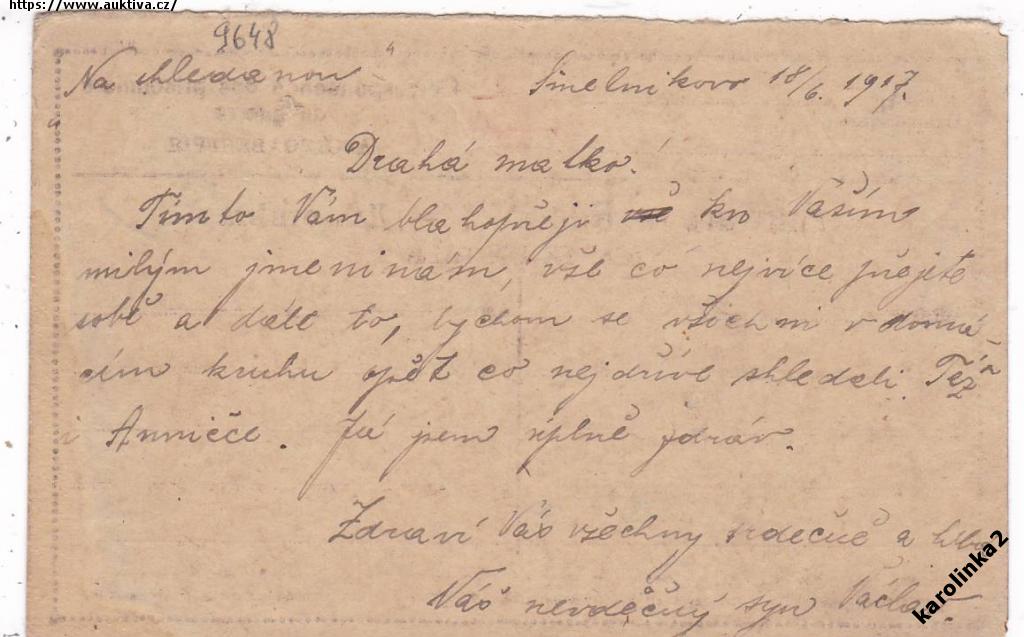 https://www.auktiva.cz/
9648
"Na shledanou" Sinelnikovo 18/6. 1917.
Drahá matko!
Tímto Vám blahopřeji ku Vašim
milým jmeninám, vše co nejvíce přejete
sobě a dále to, bychom se všichni v domá-
cím kruhu opět co nejdříve shledali. Též
i Anničce. Já jsem úplně zdráv.
Zdraví Vás všechny srdečně a
Váš nevděčný syn Václav.
karolinka2